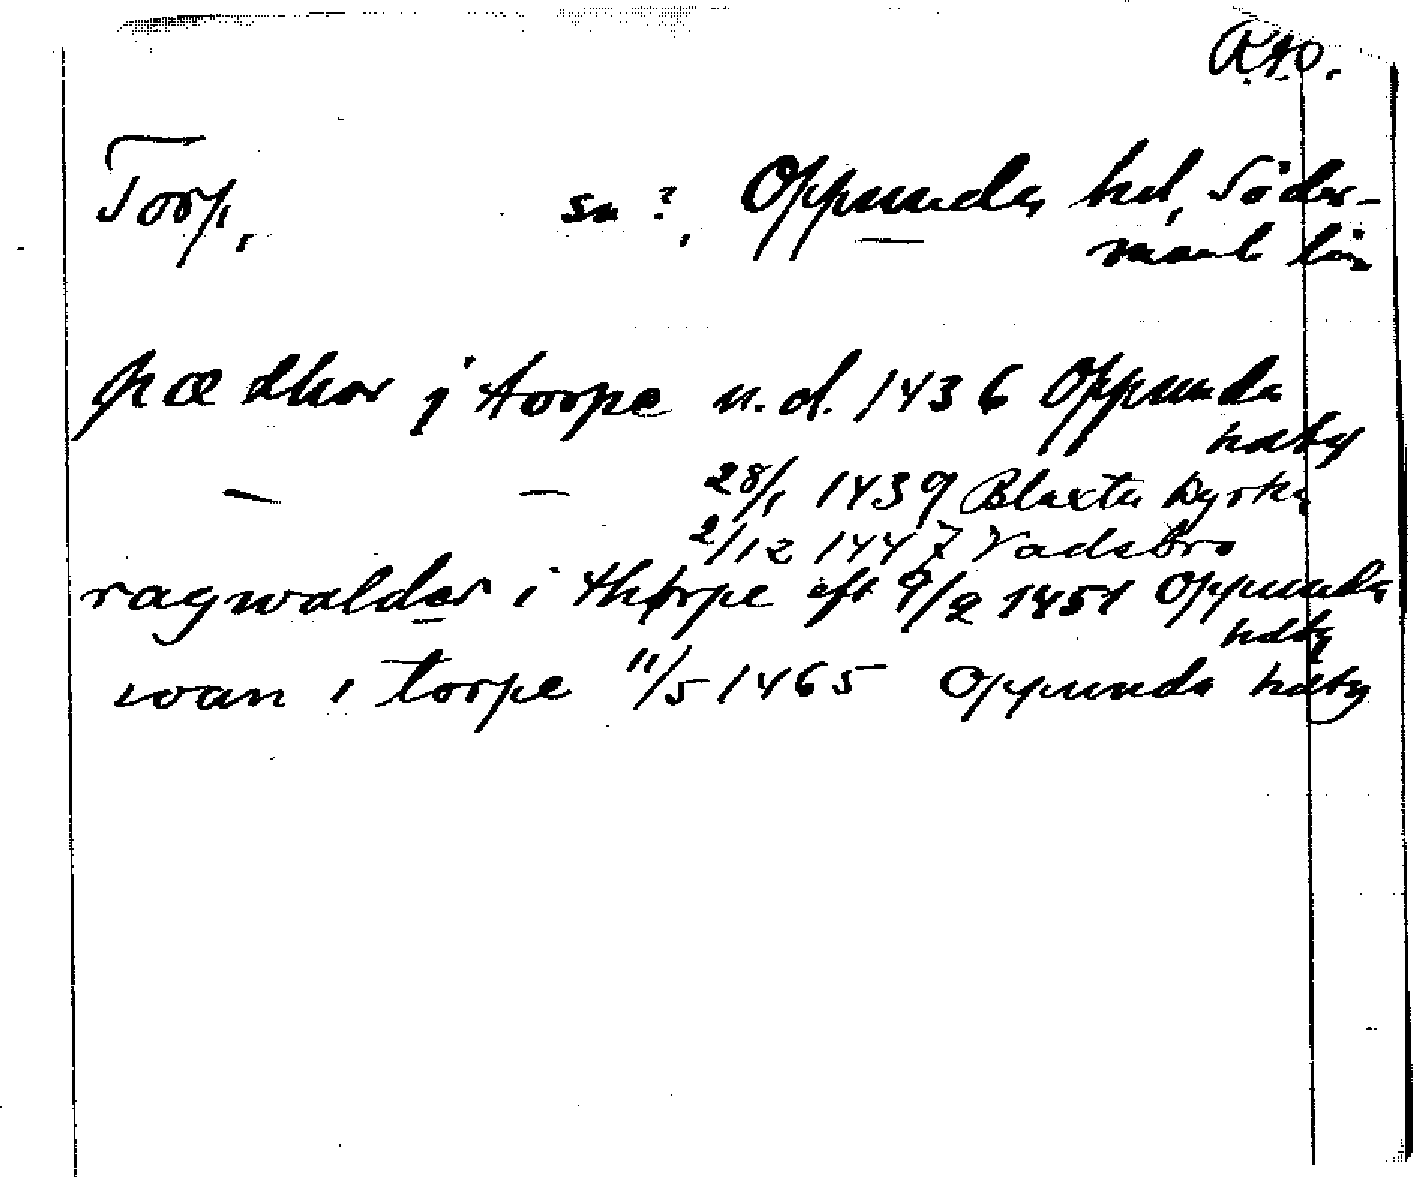 RAp.
Torp, sn ?, Oppunda hd, Söder-
manl. län
pædhar j torpe u.d. 1436 Oppunda
hdby
— — 28/1 1439 Blaxta kyrka
2/12 1447 Vadsbro
ragwalder i thørpe eft 9/2 1451 Oppunda
hdby
ivan i torpe 11/5 1465 Oppunda hdby